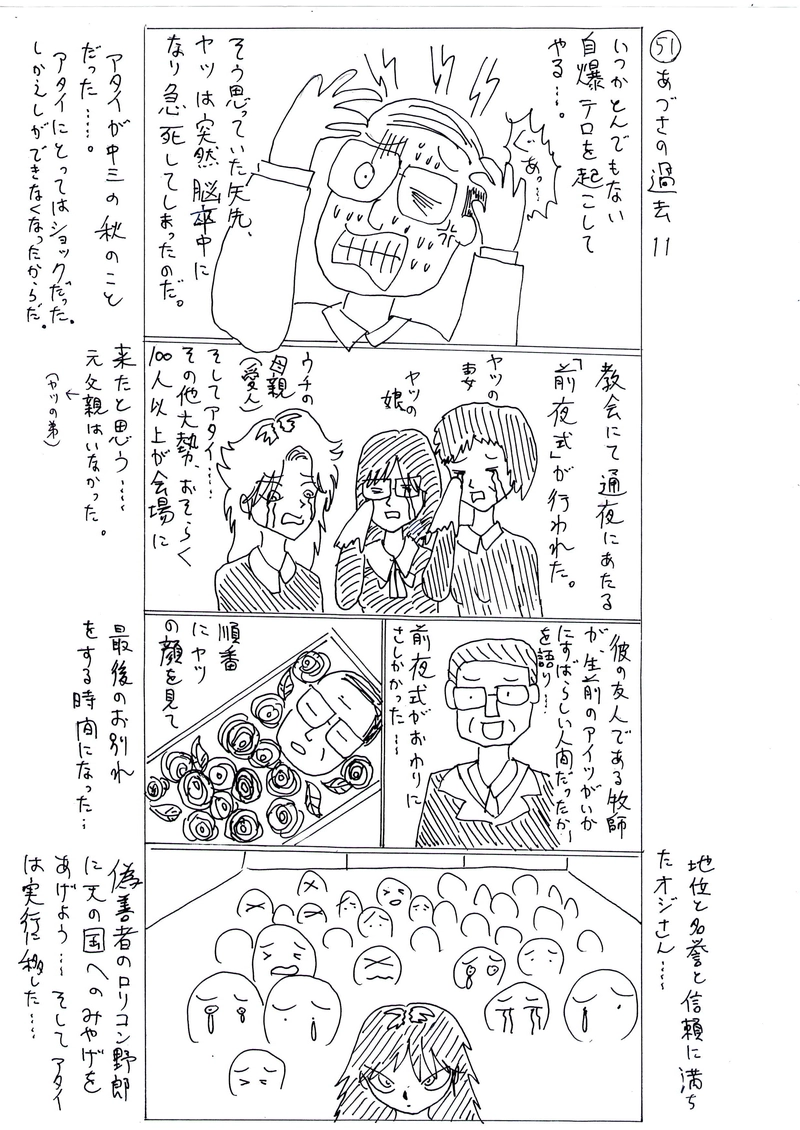 51 あづさの過去 11
いつかとんでもない
自爆テロを起こして
やる…。
ぐあっ…
そう思っていた矢先、
ヤツは突然脳卒中に
なり急死してしまったのだ。
アタイが中三の秋のこと
だった……。
アタイにとってはショックだった。
しかえしができなくなったからだ。
教会にて通夜にあたる
「前夜式」が行われた。
ヤツの
妻
ヤツの
娘
ウチの
母親
(愛人)
そしてアタイ……
その他大勢、おそらく
100人以上が会場に
来たと思う……
元父親はいなかった。
↑
(ヤツの弟)
彼の友人である牧師
が、生前のアイツがいか
にすばらしい人間だったか
を語り……
前夜式がおわりに
さしかかった……
順番
にヤツ
の顔を見て
最後のお別れ
をする時間になった…
地位と名誉と信頼に満ち
たオジさん……
偽善者のロリコン野郎
に天の国へのみやげを
あげよう……そしてアタイ
は実行に移した……